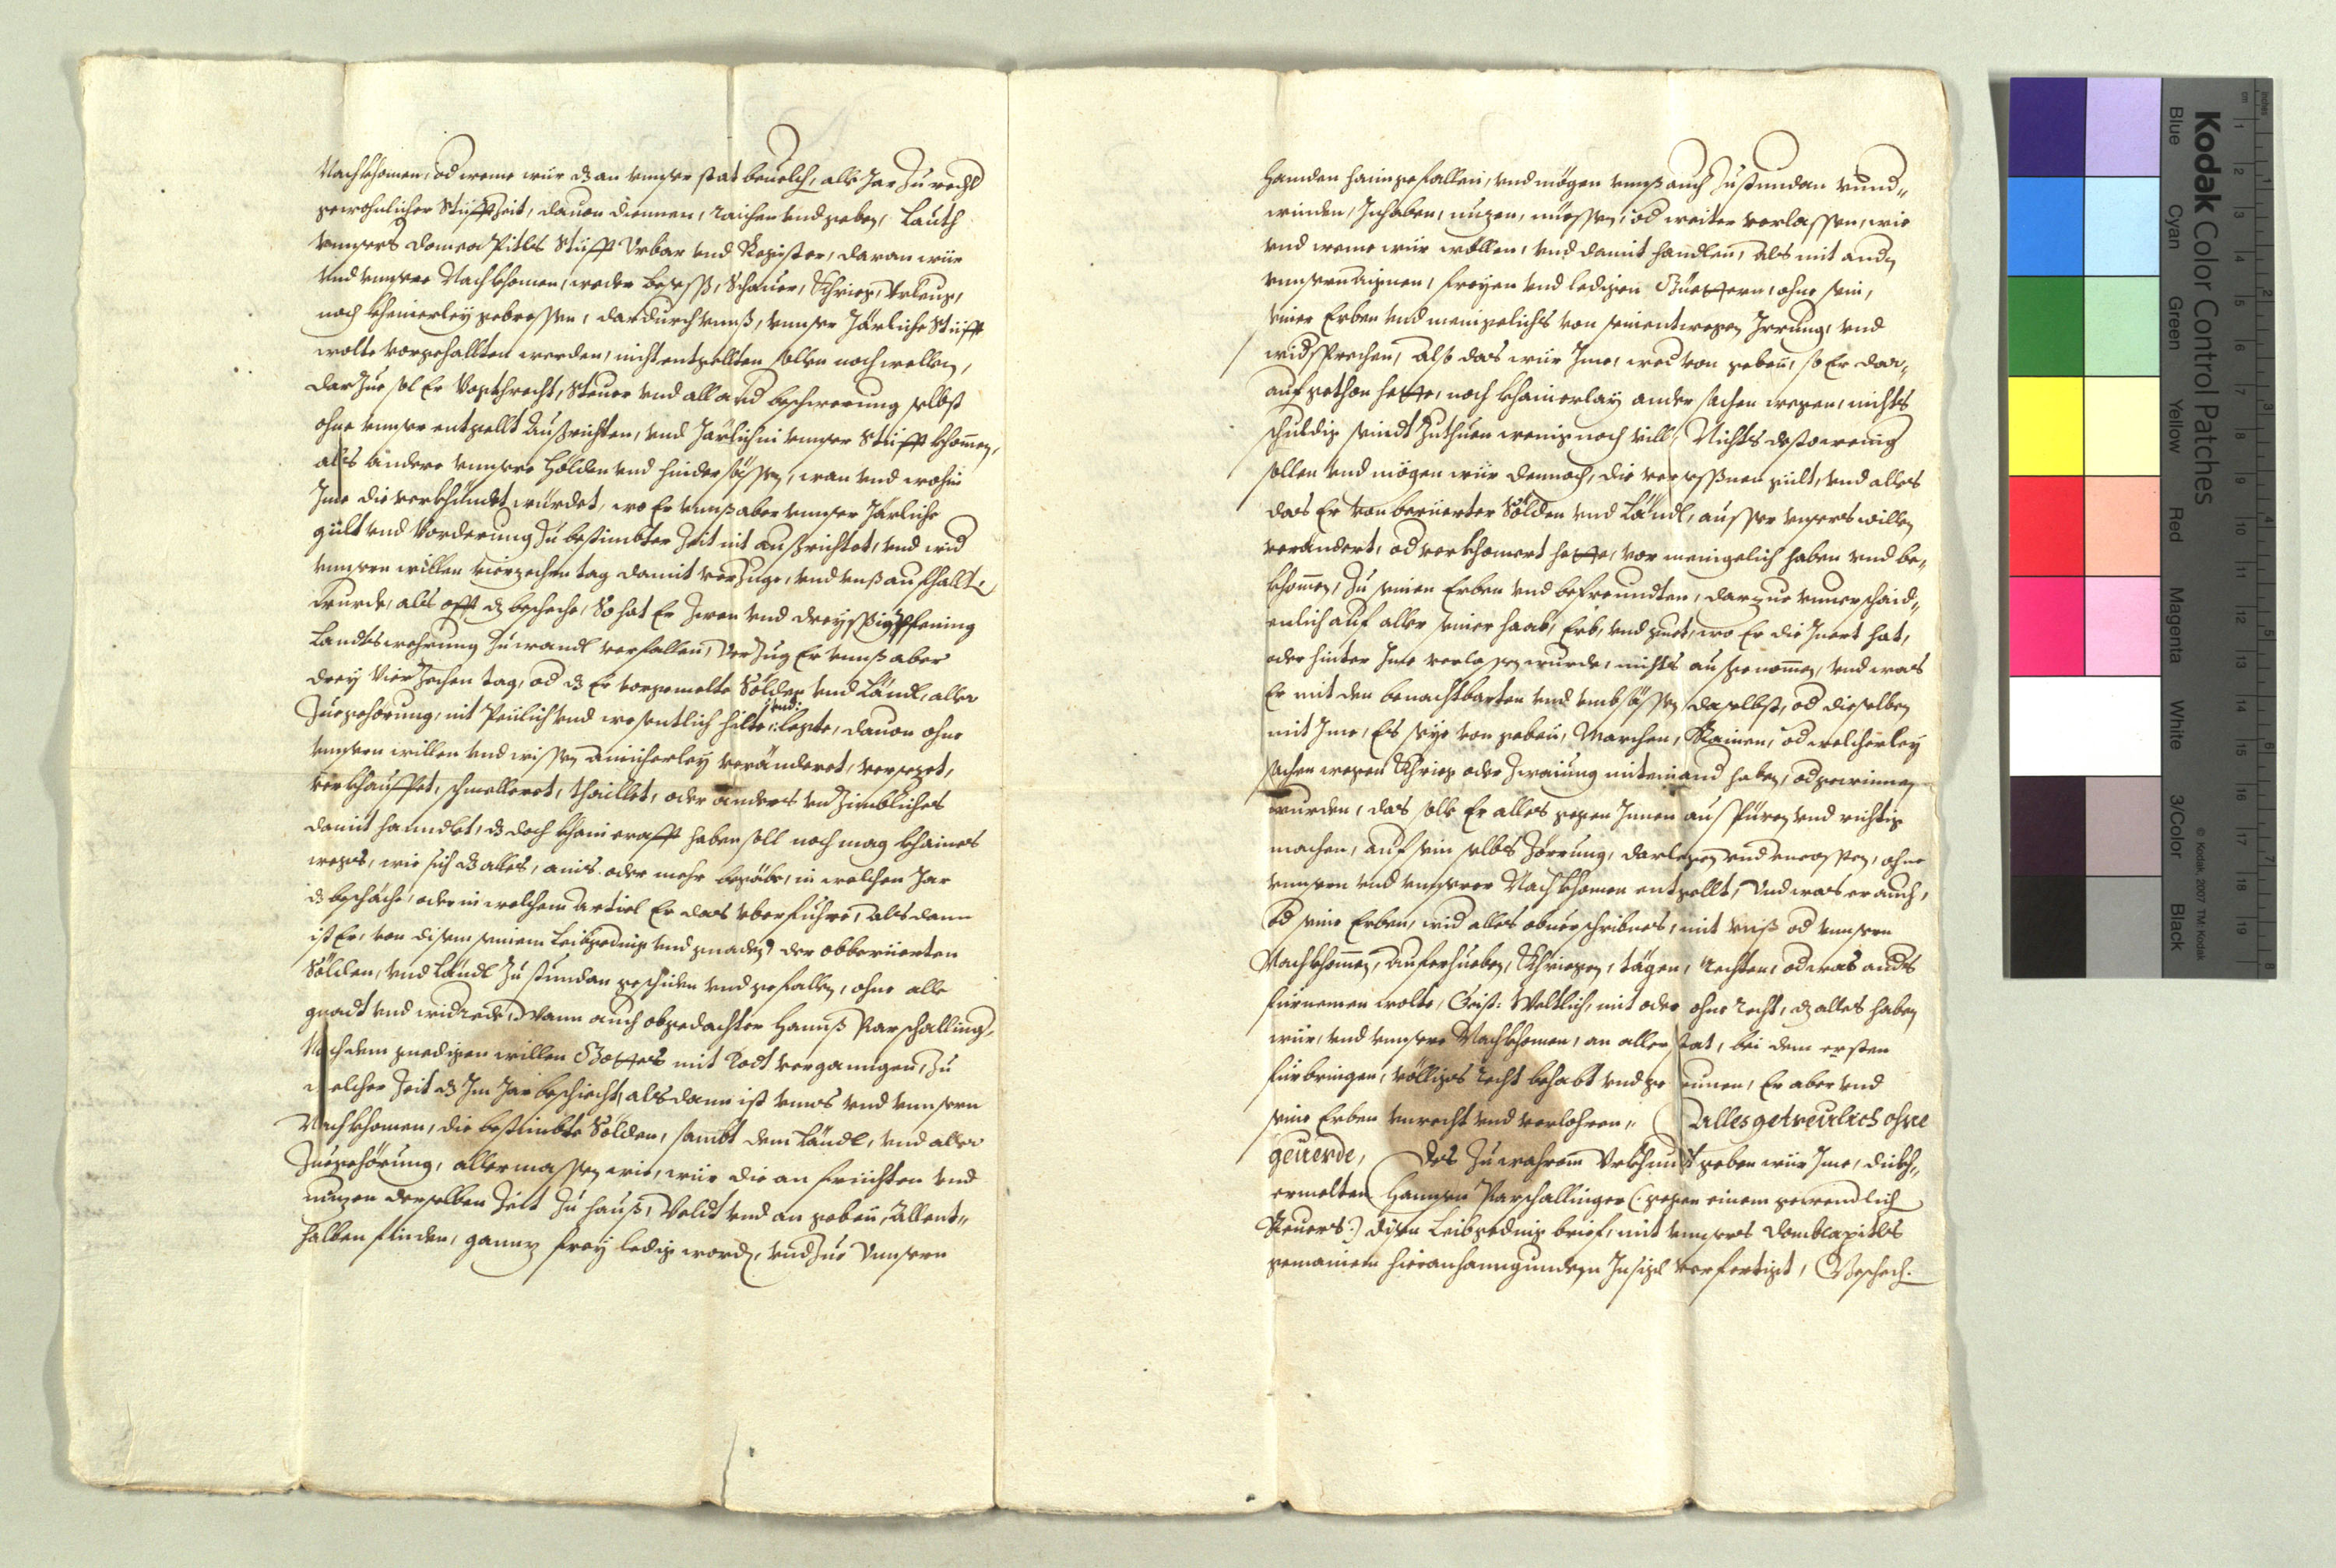 Nachkhomen, od weme wür dz an unser stat beuelch, alle Jar Zu recht
gewohnlicher Stüfftzeit, dauon diennen, raichen und geben, Lauth
unsers domcapitls Stüfft Urbar und Register, daran wür
und unnsere Nachkhomen, weder besess, Schauer, Khrieg, Urleug,
noch khainerley gebressen, dardurch unnß, unnser Järliche Stüfft
wolte vorgehallten werden, nicht entgellten sollen noch wellen,
darZue sol Er Vogthrecht, Steuer und all and beschwerung selbst
ohne unnser entgellt Außrichten, und Järlich in unnser Stüfft khomen,
als andere unnsere Holden und hindersässen, wan und wohin
Ime die verkhündet würdet, wo Er unnß aber unnser Järliche
gült und Vorderung Zu bestimbter Zeit nit außrichtet, und wid
unnsern willen vierzechen tag damit verzuge, und unß aufhallte
wurde, als offt dz bescheche, So hat Er Zwen und dreyssig pfening
Landtswehrung Zu wandl verfallen, Verzug Er unnß aber
drey VierZechen tag, od dz Er vorgemelte Sölden und Ländl, aller
Zuegehörung, nit Peülich und wesentlich hilte :und: legte, dauon ohne
unnsern willen und wissen ainicherley verändert, versezet,
verkhauffet, schmelleret, thaillet, oder anders unzimbliches
damit hanndlet, dz doch khain crafft haben soll noch mag khaines
wegs, wie sich dz alles, ains oder mehr begäbe, in welchen Jar
dz beschäche, oder in welchem articl Er das überführe, als dann
ist Er, von disem seinem Leibgeding und gnaden der obberüerten
Sölden, und Ländl Zu stundan geschiden und gefallen, ohne alle
gnadt und widrede, Wann auch obgedachter Hannß Parschalling,
Nach dem gnedigen willen Gottes mit Todt vergangen, Zu
welcher Zeit dz Im Jar beschiecht, als dann ist unns und unnsern
Nachkhomen, die bestimbte Sölden, sambt dem Ländl, und aller
Zuegehörung, allermassen wie, wür die an früchten und
nuzen derselben Zeit Zu hauß, Veldt und an gebeü, Allent„
halben finden, gannz frey ledig worden, und Zue unnsern
Hannden haimgefallen, und mögen unnß auch Zu stundan und„
winden, Inhaben, nuzen, nüessen, od weiter verlassen, wie
und weme wür wöllen, und damit handlen, als mit andern
unnsern aignen, freyen und ledigen Güettern, ohne sein,
seiner Erben und menigelichs von seinentwegen Irrung, und
widsprechen, Also das wür Ime, wed von gebeü, so Er dar„
auf gethon hette, noch khainerlay ander sachen wegen, nichts
schuldig seindt Zuthuen wenig noch vill, Nichts destoweniger
sollen und mögen wür dennoch, die versessnen gült, und alles
das Er von berüerter Sölden und Ländl, ausser unsers willen
verändert, od verkhomert hette, vor menigelich haben und be„
khomen, Zu seinen Erben und befreundten, darzue unuerschaid„
enlich auf aller seiner haab, Erb, und guet, wo Er die Inert hat,
oder hinter Ime verlassen wurde, nichts außgenomen, und was
Er mit den benachtbarten und umbsässen daselbst, od dieselben
mit Ime, Es seye von gebeü, Marchen, Rainen, od welcherley
sachen wegen Khrieg oder Zwaiung miteinand haben, od gewinnen
wurden, das solle Er alles gegen Innen auspüren und richtig
machen, auf sein selbs Zörrung, darlegen und uncossten, ohne
unnsern und unnserer Nachkhomen entgellt, Und was er auch,
Od seine Erben, wid alles obuerschribnes, mit unß od unnsern
Nachkhomen, auferhueben, Khriegen, tägen, Rechten, od was andrs
fürnemen wolte, Geist: Weltlich, mit oder ohne recht, dz alles haben
wür, und unnsere Nachkhomen, an aller stat, bei dem ersten
fürbringen, völliges recht behabt und gewunnen, Er aber und
seine Erben unrecht und verlohren„ Alles getreulich ohne
geuerde, Des Zu wahrem Urkhundt geben wür Ime, dickh„
ermelten Hannsen Parschallinger (: gegen einem gewendlich
Reuers:) disen Leibgeding brief, mit unnsers Dombcapitls
gemainem hieranhanngundem Insigl verfertigt, Geschech.
Kodak Color Control Patches
Blue Cyan Green Yellow Red Magenta White 3/Color Black
© Kodak, 2007 TM: Kodak
inches 1 2 3 4 5 6 7 8
cm 1 2 3 4 5 6 7 8 9 10 11 12 13 14 15 16 17 18 19